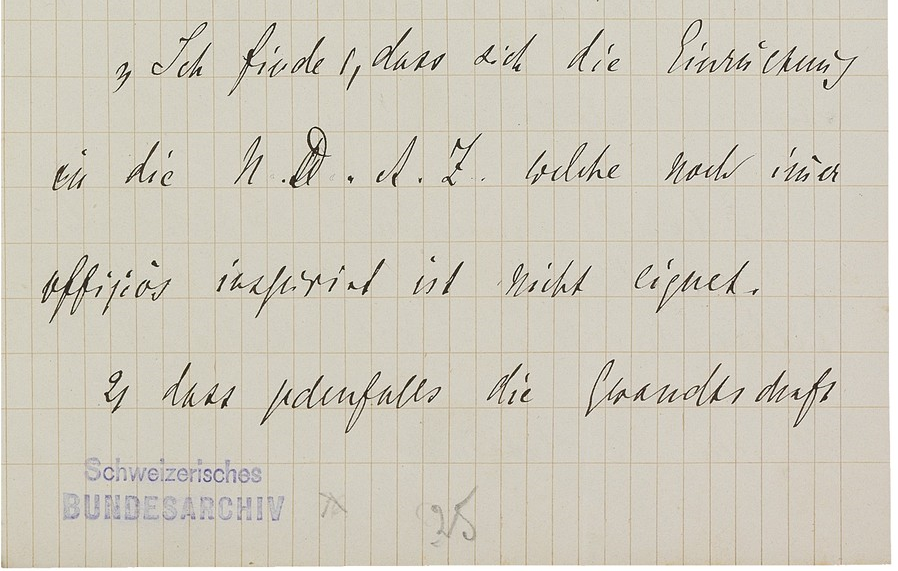 1) Ich finde, dass sich die Einrückung
in die N.D.A.Z. welche noch im̅er
offiziös inspirirt ist nicht eignet.
2) dass jedenfalls die Gesandtschaft
Schweizerisches
BUNDESARCHIV
25